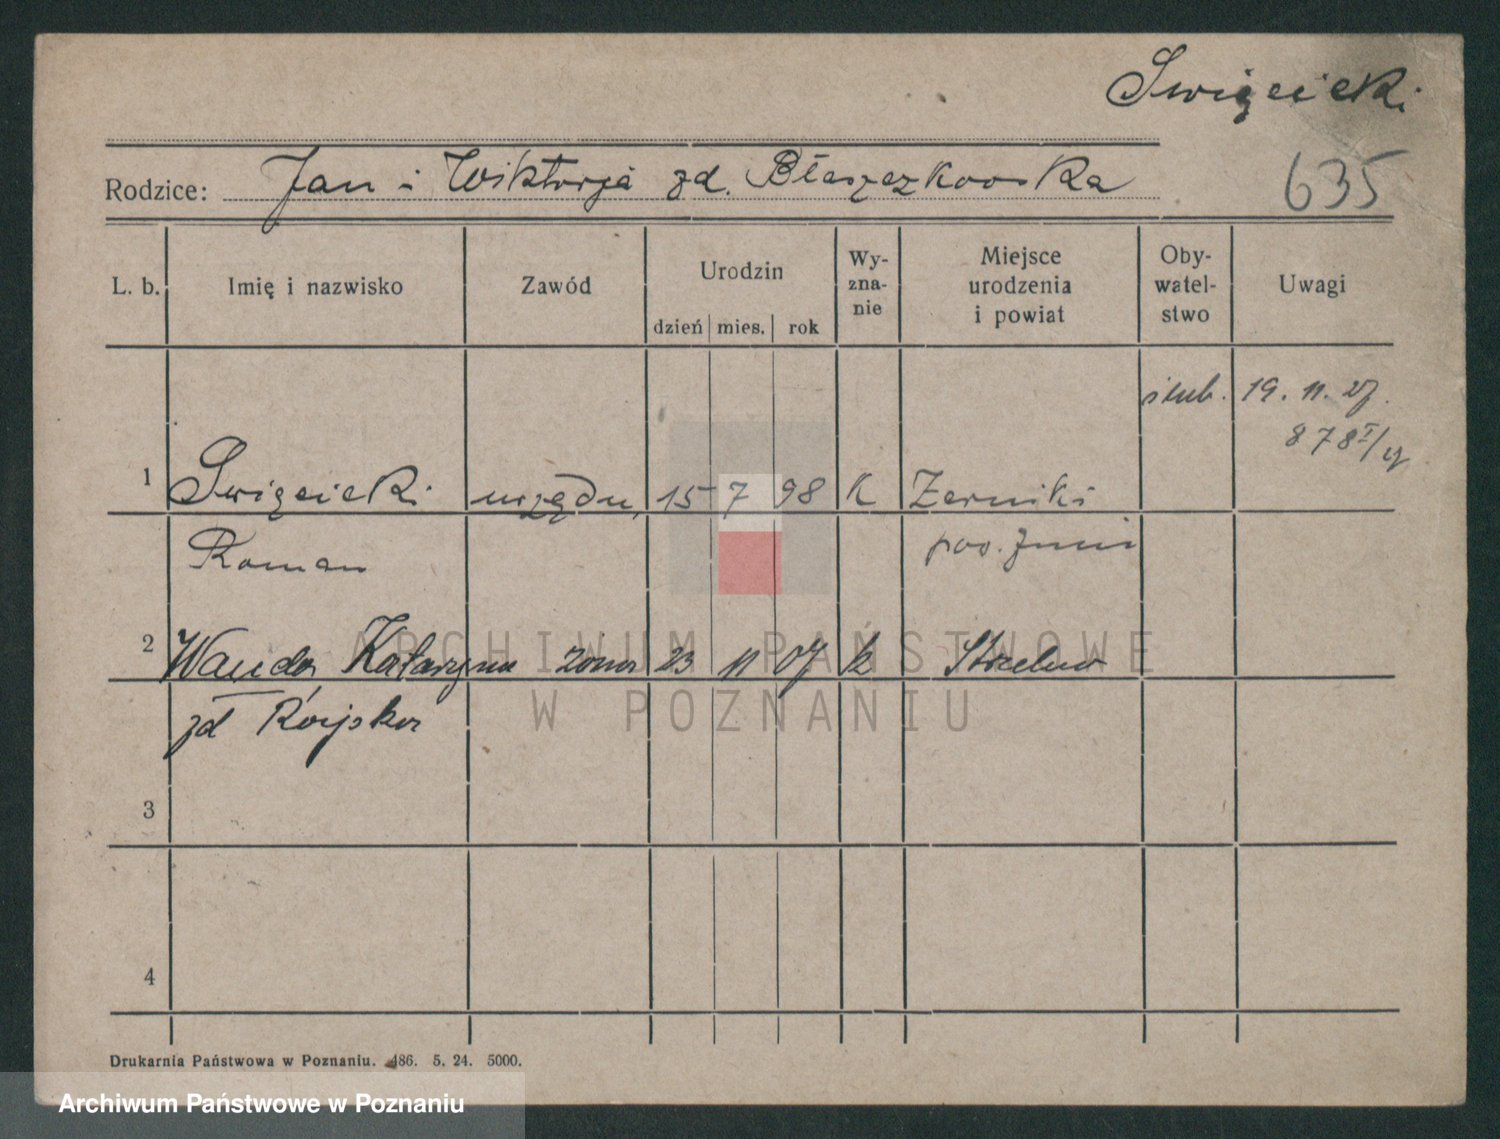 Swięcicki
Rodzice: Jan i Wiktorja zd. Błaszczkowska
635
L. b. Imię i nazwisko Zawód Urodzin dzień mies. rok Wy-
zna-
nie Miejsce
urodzenia
i powiat Oby-
watel-
stwo Uwagi
ślub. 19. 11. 27.
878 I/27
1 Swięcicki urzędn. 15 7 98 K Zerniki
Roman pow. Żnin
2 Wanda Katarzyna żona 23 11 07 k Strzelno
zd
3
4
Drukarnia Państwowa w Poznaniu. 486. 5. 24. 5000.
ARCHIWUM PAŃSTWOWE
W POZNANIU
Archiwum Państwowe w Poznaniu